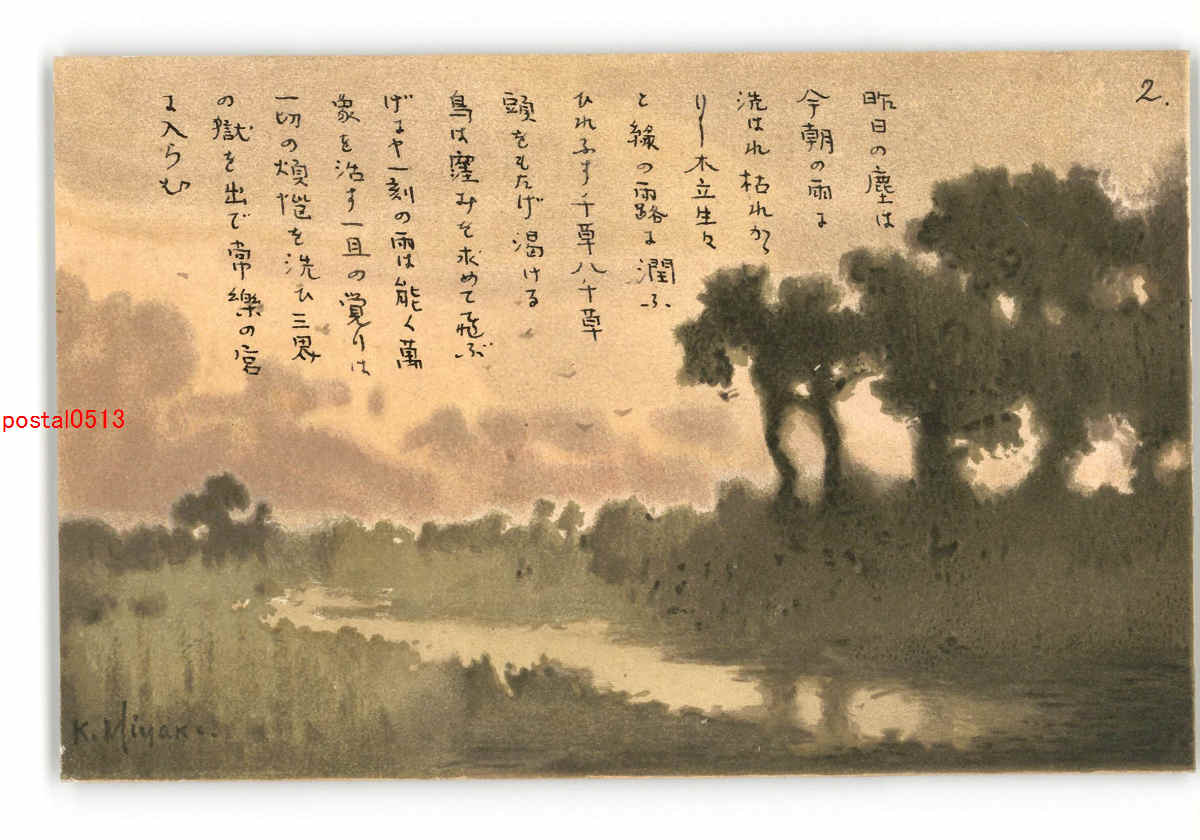 2.
昨日の塵は
今朝の雨に
洗はれ枯れかゝ
りし木立生々
と緑の雨路に潤ふ
ひれふす千草八千草
頭をもたげ渇ける
鳥は窪みを求めて飛ぶ
げにや一刻の雨は能く萬
象を活す一旦の覚りは
一切の煩悩を洗ひ三界
の獄を出で常樂の宮
に入らむ
K. Miyake.
postal0513